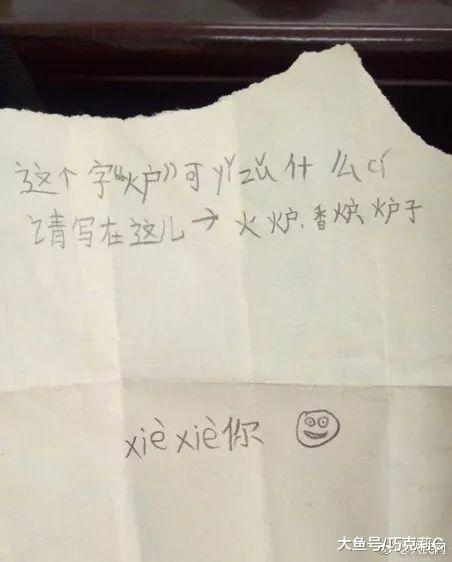 这个字“炉”可yǐ zǔ什么cí
请写在这儿→火炉、香炉、炉子
xiè xiè你
大鱼号/巧克莉C